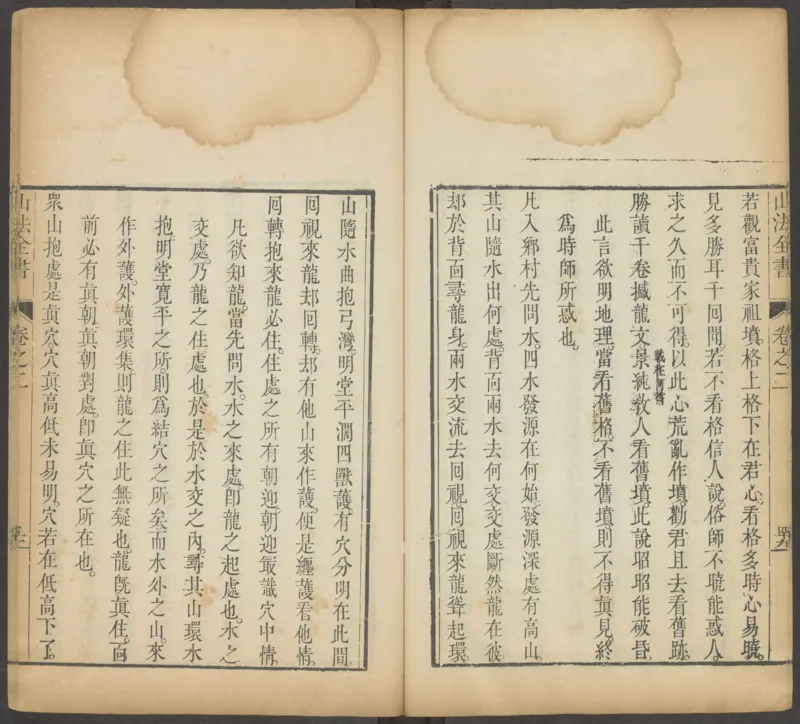 山法全書
卷之二
若觀富貴家祖墳格上格下在君心看格多時心易曉
見多勝耳千囘聞若不看格信人說俗師不曉能惑人
求之久而不可得以此心荒亂作墳勸君且去看舊跡
勝讀千卷撼龍文景純敎人看舊墳此說昭昭能破昏
此言欲明地理當看舊格不看舊墳則不得眞見終
爲時師所惑也
凡入鄉村先問水四水發源在何始發源深處有高山
其山隨水出何處背面兩水去何交交處斷然龍在彼
却於背面尋龍身兩水交流去囘視囘視來龍聳起環
山隨水曲抱弓灣明堂平濶四獸護有穴分明在此間
囘視來龍却囘轉却有他山來作護便是纒護君他情
囘轉抱來龍必住住處之所有朝迎朝迎最識穴中情
凡欲知龍當先問水水之來處卽龍之起處也水之
交處乃龍之住處也於是於水交之內尋其山環水
抱明堂寬平之所則爲結穴之所矣而水外之山來
作外護外護環集則龍之住此無疑也龍旣眞住面
前必有眞朝眞朝對處卽眞穴之所在也
衆山抱處是眞穴穴眞高低未易明穴若在低高下了
山法全書
卷之二